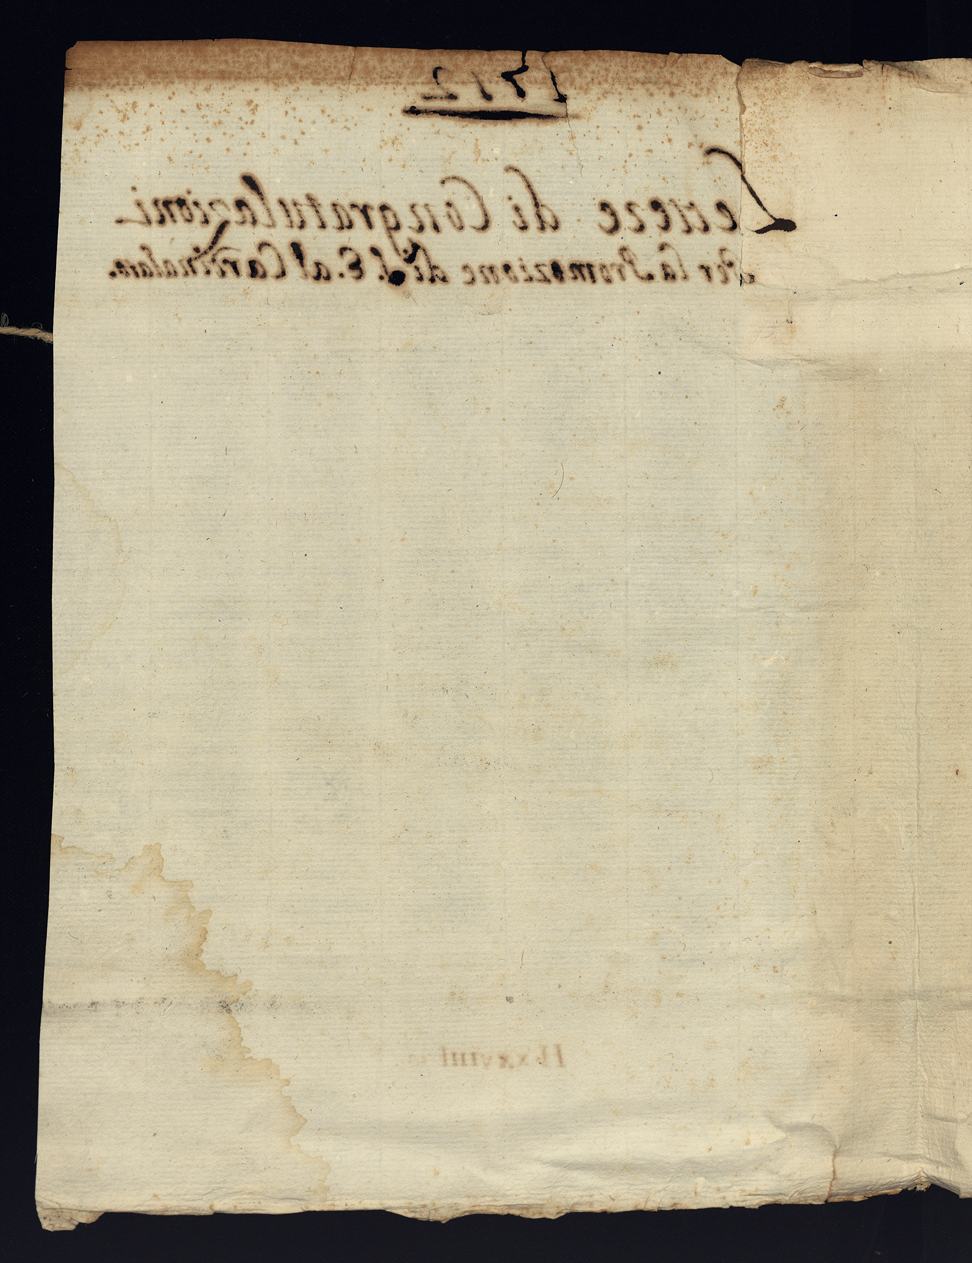 1712
Lettere di Congratulazioni
Per la Promozione di S. E. al Cardinalato.
II. xxviiii